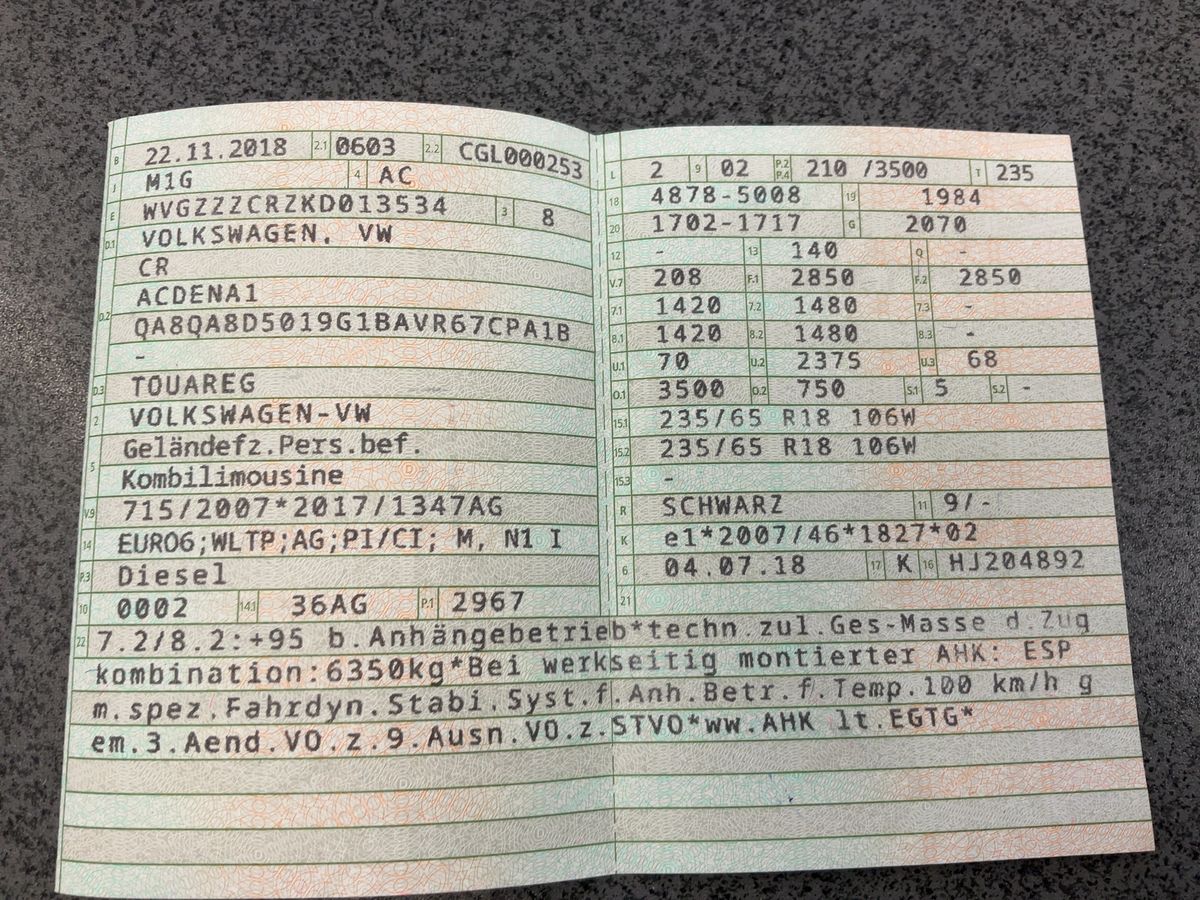 B 22.11.2018 2.1 0603 2.2 CGL000253
J M1G 4 AC
E WVGZZZCRZKD013534 3 8
D.1 VOLKSWAGEN, VW
CR
D.2 ACDENA1
QA8QA8D5019G1BAVR67CPA1B
-
D.3 TOUAREG
2 VOLKSWAGEN-VW
5 Geländefz.Pers.bef.
Kombilimousine
V.9 715/2007*2017/1347AG
14 EURO6;WLTP;AG;PI/CI; M, N1 I
P.3 Diesel
10 0002 14.1 36AG P.1 2967
L 2 9 02 P.2 P.4 210 /3500 T 235
18 4878-5008 19 1984
20 1702-1717 G 2070
12 - 13 140 Q -
V.7 208 F.1 2850 F.2 2850
7.1 1420 7.2 1480 7.3 -
8.1 1420 8.2 1480 8.3 -
U.1 70 U.2 2375 U.3 68
O.1 3500 O.2 750 S.1 5 S.2 -
15.1 235/65 R18 106W
15.2 235/65 R18 106W
15.3 -
R SCHWARZ 11 9/-
K e1*2007/46*1827*02
6 04.07.18 17 K 16 HJ204892
21
22 7.2/8.2:+95 b.Anhängebetrieb*techn.zul.Ges-Masse d.Zug
kombination:6350kg*Bei werkseitig montierter AHK: ESP
m.spez.Fahrdyn.Stabi.Syst.f.Anh.Betr.f.Temp.100 km/h g
em.3.Aend.VO.z.9.Ausn.VO.z.STVO*ww.AHK lt.EGTG*